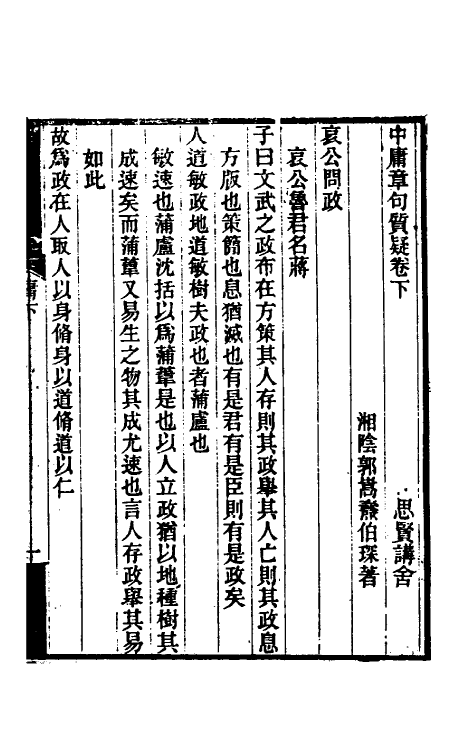 中庸章句質疑卷下
思賢講舍
湘陰郭嵩燾伯琛著
哀公問政
哀公魯君名蔣
子曰文武之政布在方策其人存則其政舉其人亡則其政息
方版也策簡也息猶滅也有是君有是臣則有是政矣
人道敏政地道敏樹夫政也者蒲盧也
敏速也蒲盧沈括以爲蒲葦是也以人立政猶以地種樹其
成速矣而蒲葦又易生之物其成尤速也言人存政舉其易
如此
故爲政在人取人以身脩身以道脩道以仁
庸下
一